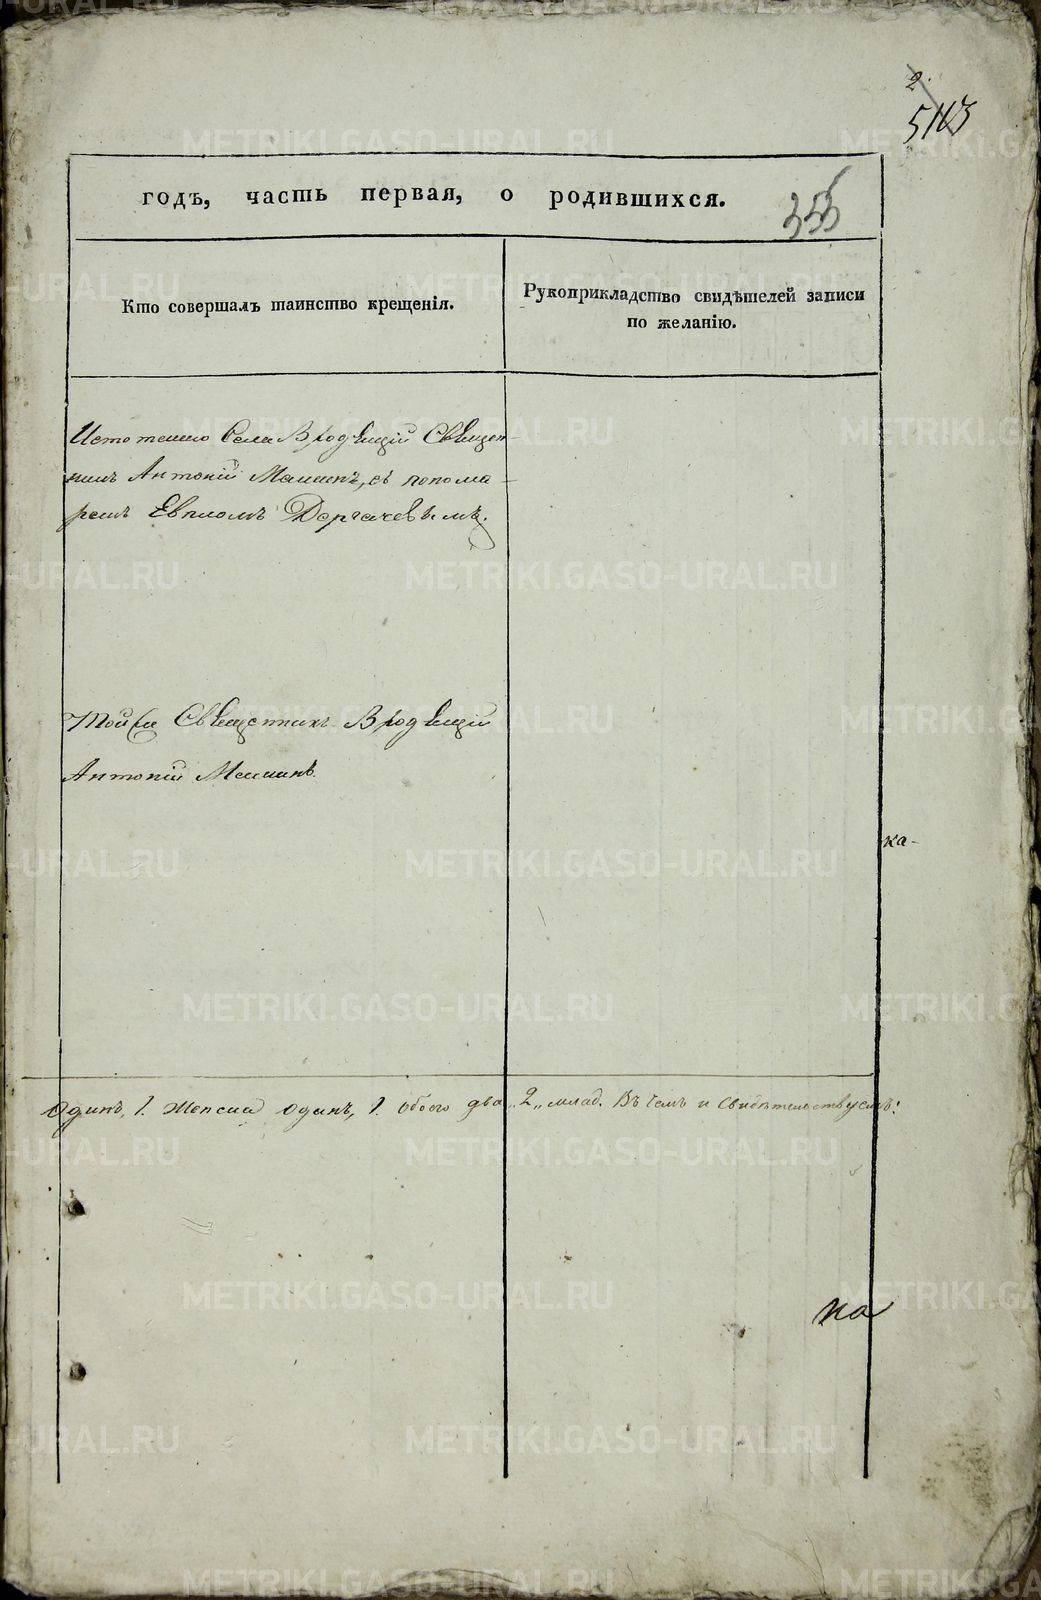 2.
годъ, часть первая, о родившихся.
Кто совершалъ таинство крещенія.
Рукоприкладство свидѣтелей записи
по желанію.
Села Входящій Священ-
никъ Антоній Мамин, съ понома-
ремъ Евпломъ
Тойже Священникъ Входящій
Антоній Маминъ.
ка-
Одинъ, 1. Женска одинъ, 1. обоего два „2„ млад. Въ чемъ и свидѣтельствуемъ:
на
METRIKI.GASO-URAL.RU